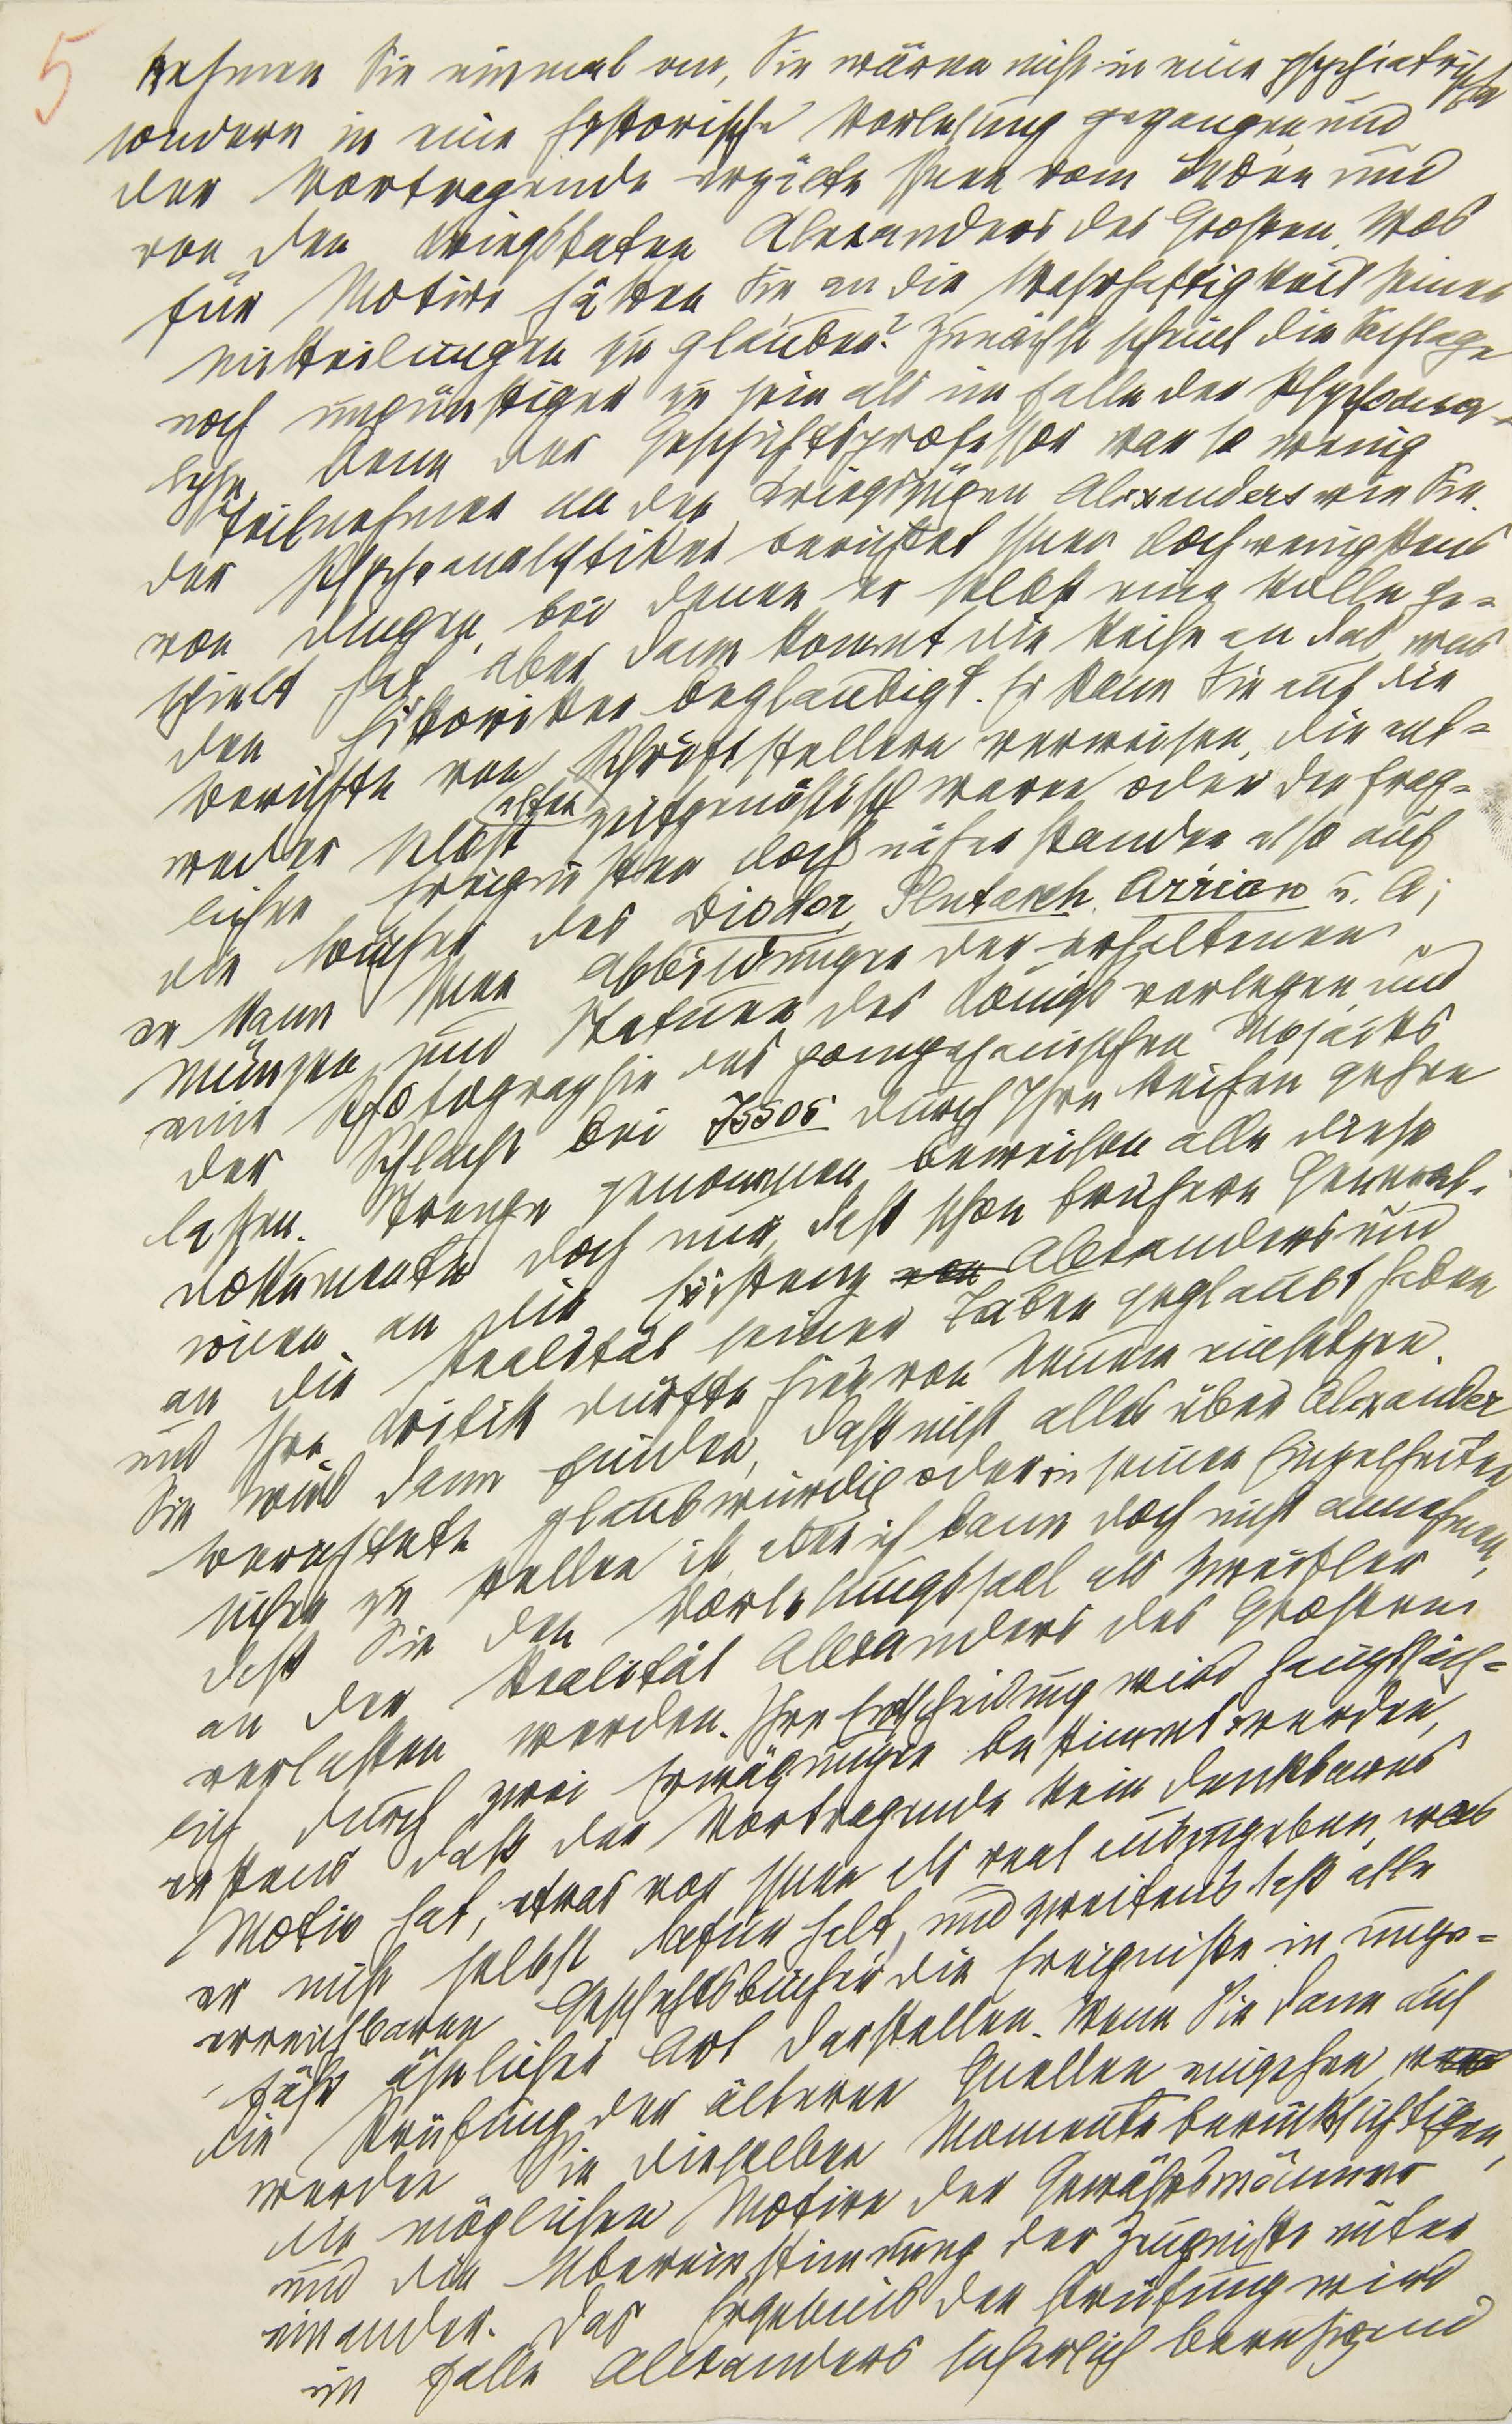 5
Nehmen Sie einmal an, Sie wären nicht in eine psychiatrische
sondern in eine historische Vorlesung gegangen und
der Vortragende erzälte Ihnen vom Leben und
von den Kriegstaten Alexanders des Großen. Was
für Motive hätten Sie, an die Wahrhaftigkeit seiner
Mitteilungen zu glauben? Zunächst scheint die Sachlage
noch ungünstiger zu sein als im Falle der Psychoana-
lyse, denn der Geschichtsprofessor war so wenig
Teilnehmer an den Kriegszügen Alexanders wie Sie.
der Psychoanalytiker berichtet Ihnen doch wenigstens
von Dingen, bei denen er selbst eine Rolle ge-
spielt hat. Aber dann kommt die Reihe an das, was
den Historiker beglaubigt. Er kann Sie auf die
Berichte von Schriftstellern verweisen, die ent-
weder selbst zeitgenössisch waren oder den frag-
lichen Ereignissen doch näher standen also auf
die Bücher des Diodor, Plutarch, Arrian u. A;
er kann Ihnen Abbildungen der erhaltenen
Münzen und Statuen des Königs vorlegen und
eine Photographie des pompejanischen Mosaiks
der Schlacht bei Issos durch Ihre Reihen gehen
lassen. Strenge genommen beweisen alle diese
Dokumente doch nur, daß schon frühere General-
ionen an die Existenz Alexanders und
an die Realität seiner Taten geglaubt haben
und Ihre Kritik dürfte hier von Neuem einsetzen.
Sie wird dann finden, daß nicht alles über Alexander
Berichtete glaubwürdig oder in seinen Einzelheiten
sicher zu stellen ist, aber ich kann doch nicht annehmen,
daß Sie den Vorlesungssaal als Zweifler
an der Realität Alexanders des Großen
verlassen werden. Ihre Entscheidung wird hauptsäch-
lich durch zwei Erwägungen bestimmt werden,
erstens daß der Vortragende kein denkbares
Motiv hat, etwas vor Ihnen als real auszugeben, was
er nicht selbst dafür hält, und zweitens daß alle
erreichbaren Geschichtsbücher die Ereignisse in unge-
fähr änlicher Art darstellen. Wenn Sie dann auf
die Prüfung der älteren Quellen eingehen,
werden Sie dieselben Momente berücksichtigen,
die möglichen Motive der Gewährsmänner
und die Übereinstimmung der Zeugnisse unter
einander. Das Ergebnis der Prüfung wird
im Falle Alexanders sicherlich beruhigend